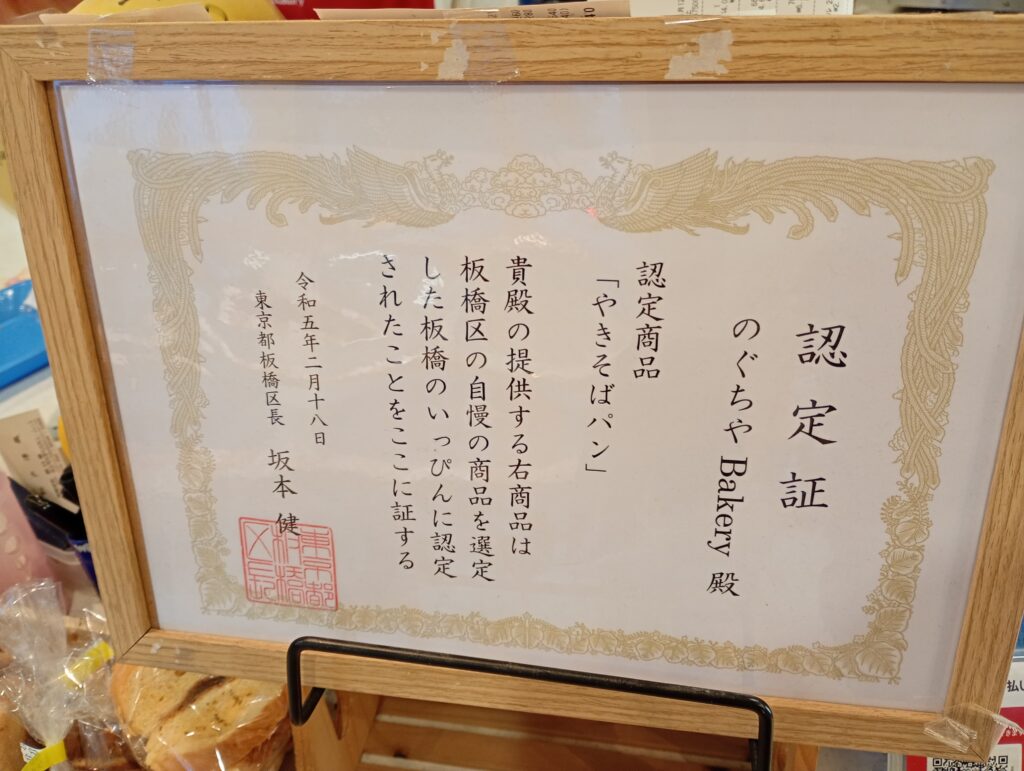 認定証
のぐちや Bakery 殿
認定商品
「やきそばパン」
貴殿の提供する右商品は
板橋区の自慢の商品を選定
した板橋のいっぴんに認定
されたことをここに証する
令和五年二月十八日
東京都板橋区長 坂本 健
東京都
板橋
区長
払し